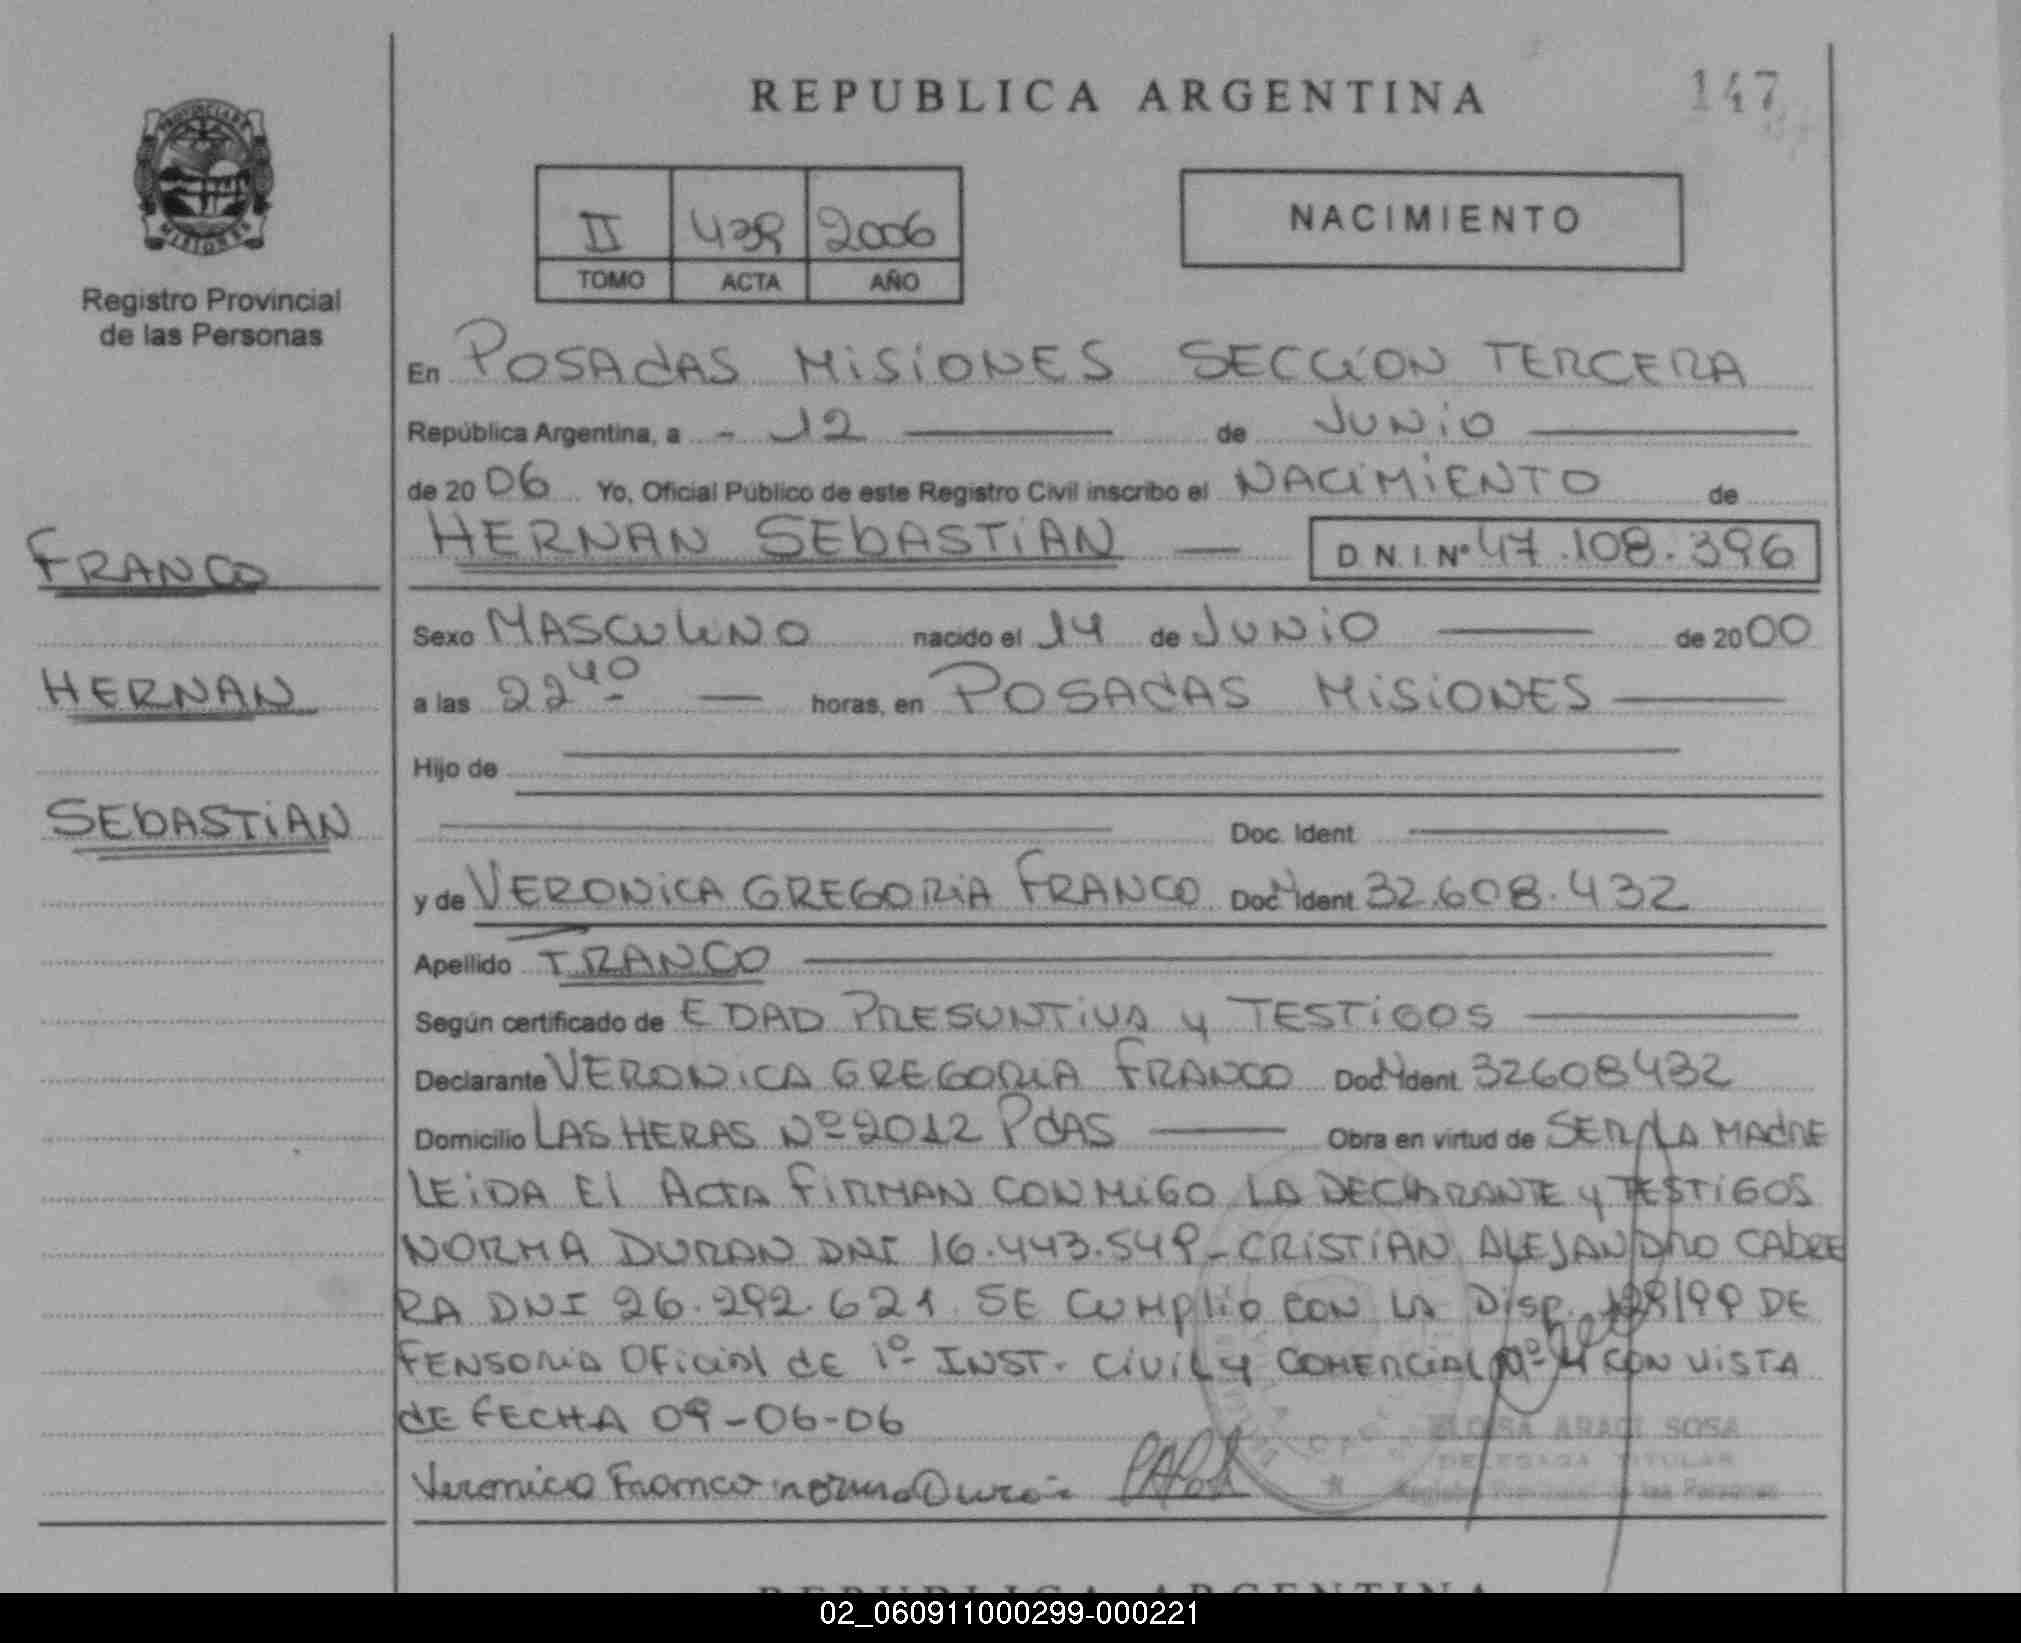 REPUBLICA ARGENTINA
147
PROVINCIA DE
MISIONES
Registro Provincial
de las Personas
II 439 2006
TOMO ACTA AÑO
NACIMIENTO
En POSAdAS MiSiONES SECCiON TERCERA
República Argentina, a - 12 de JUNiO
de 20 06 Yo, Oficial Público de este Registro Civil inscribo el NACiMiENTO de
HERNAN SEbASTiAN D.N.I. Nº 47.108.396
FRANCO
HERNAN
SEbASTiAN
Sexo MASCULiNO nacido el 14 de JUNiO de 20 00
a las 22 40 horas, en POSAdAS MiSiONES
Hijo de
Doc. Ident
y de VERONiCA GREGORiA FRANCO Doc Ident 32.608.432
Apellido FRANCO
Según certificado de EDAD PRESUNTiVA y TESTiGOS
Declarante VERONiCA GREGORiA FRANCO Doc Ident 32608432
Domicilio LAS HERAS Nº 2012 PdAS Obra en virtud de SER LA MAdRE
LEiDA El ActA FiRMAN CONMiGO LA DECLARANTE y TESTiGOS
NORMA DURAN DNI 16.443.549 - CRiSTiAN ALEJANDRO CAbRE
RA DNI 26.292.621. SE CUMpliO CON LA Disp. 129/99 DE
FENSORiA OFiciAl dE 1º INST. CiViL y COMERCiAL Nº 4 CON ViSTA
dE FECHA 09-06-06
Veronica Franco norma Duran
ELOISA ARACI SOSA
DELEGADA TITULAR
Registro Provincial de las Personas
REPUBLICA ARGENTINA
02_060911000299-000221